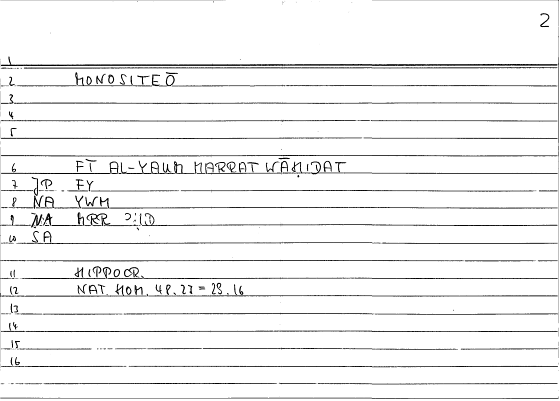 2
1
2 MONOSITEŌ
3
4
5
6 FĪ AL-YAUM MARRAT WĀḤIDAT
7 JP FY
8 NA YWM
9 NA MRR
10 SA
11 HIPPOCR.
12 NAT. HOM. 48.22 = 29.16
13
14
15
16